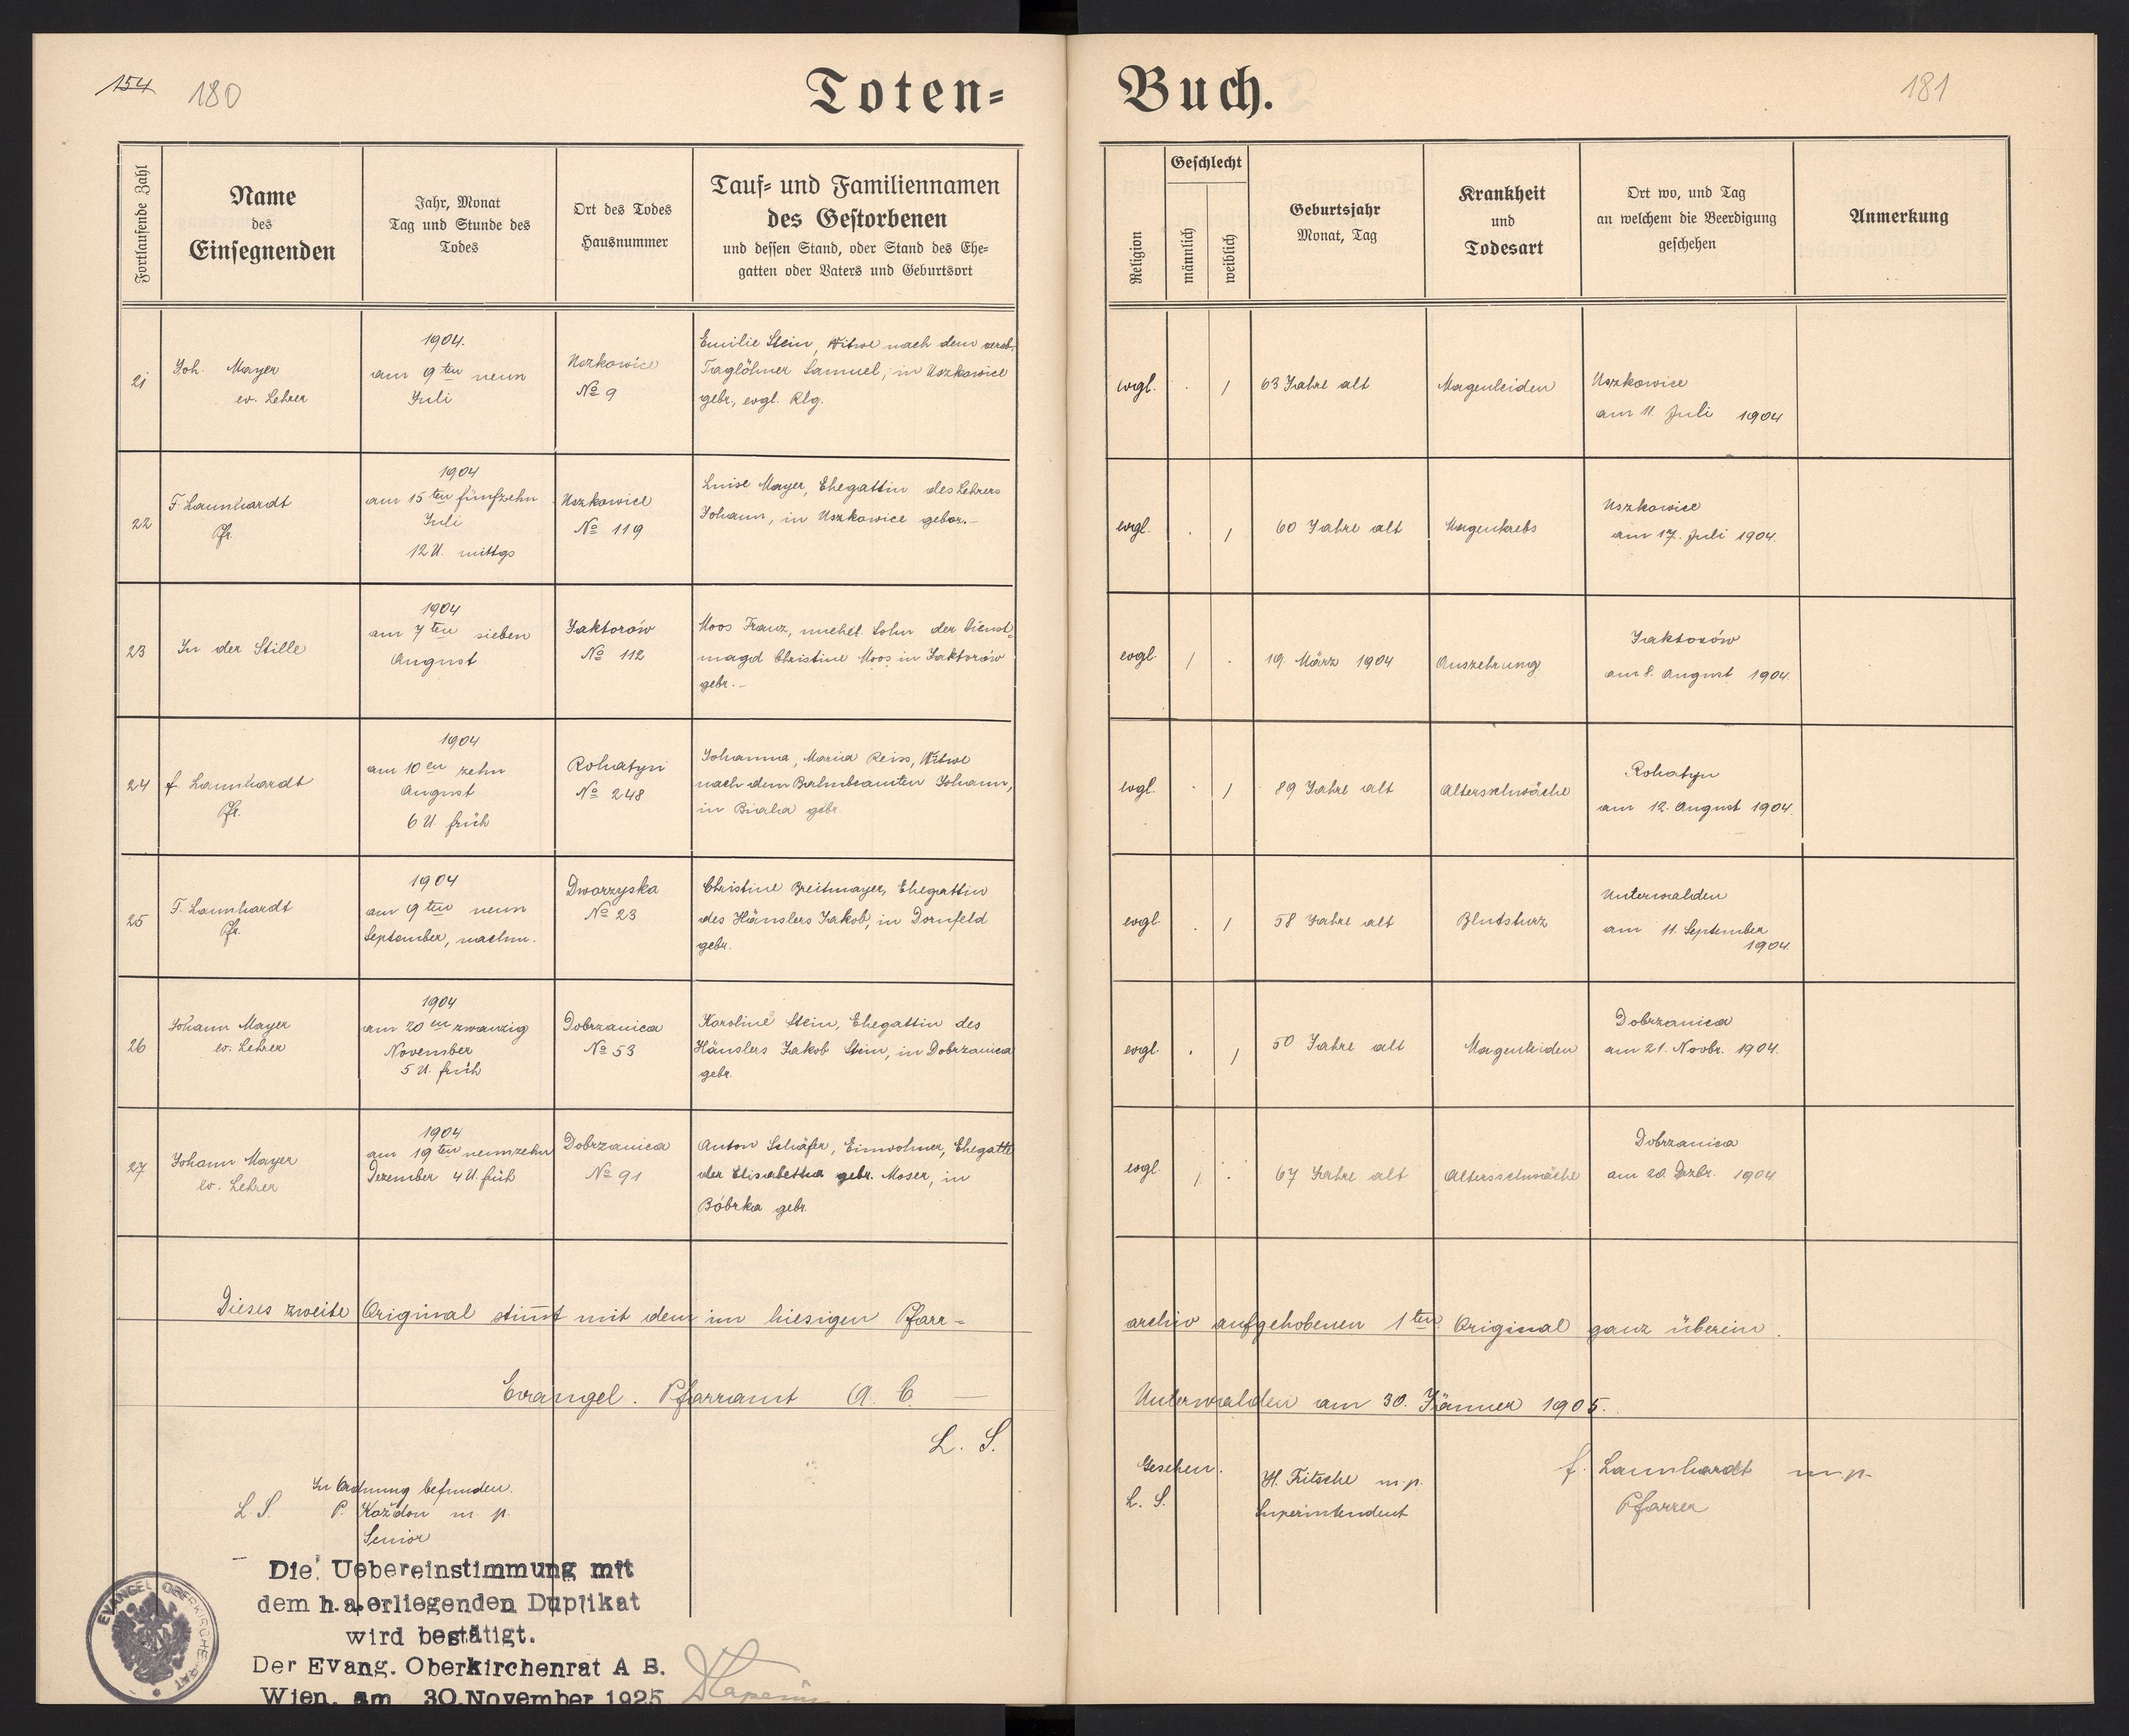 154 180
Toten=
Buch.
181
Fortlaufende Zahl
Name
des
Einsegnenden
Jahr, Monat
Tag und Stunde des
Todes
Ort des Todes
Hausnummer
Tauf= und Familiennamen
des Gestorbenen
und dessen Stand, oder Stand des Ehe=
gatten oder Vaters und Geburtsort
Religion
Geschlecht
männlich
weiblich
Geburtsjahr
Monat, Tag
Krankheit
und
Todesart
Ort wo, und Tag
an welchem die Beerdigung
geschehen
Anmerkung
21
Joh. Mayer
ev. Lehrer
1904.
am 9ten neun
Juli
Uszkowice
No 9
Emilie Stein, Witwe nach dem verst.
Taglöhner Samuel, in Uszkowice
gebr., evgl. Rlg.
evgl. . 1
63 Jahre alt
Magenleiden
Uszkowice
am 11. Juli 1904
22
F. Launhardt
Pfr.
1904
am 15ten fünfzehn
Juli
12 U. mittgs
Uszkowice
No 119
Luise Mayer, Ehegattin des Lehrers
Johann, in Uszkowice gebor.-
evgl. . 1
60 Jahre alt
Magenkrebs
Uszkowice
am 17. Juli 1904.
23
In der Stille
1904
am 7ten sieben
August
Jaktorów
No 112
Moos Franz, unehel. Sohn der Dienst=
magd Christine Moos in Jaktorów
gebr.-
evgl. 1 .
19. März 1904
Auszehrung
Jaktorów
am 8. August 1904.
24
F. Launhardt
Pfr.
1904
am 10en zehn
August
6 U. früh
Rohatyn
No 248
Johanna, Maria Reiss, Witwe
nach dem Bahnbeamten Johann,
in Biala gebr
evgl. . 1
89 Jahre alt
Altersschwäche
Rohatyn
am 12. August 1904.
25
F. Launhardt
Pfr.
1904
am 9ten neun
September, nachm.
Dworzyska
No 23
Christine Breitmayer, Ehegattin
des Häuslers Jakob, in Dornfeld
gebr.
evgl. . 1
58 Jahre alt
Blutsturz
Unterwalden
am 11. September
1904.
26
Johann Mayer
ev. Lehrer
1904
am 20en zwanzig
November
5 U. früh
Dobrzanica
No 53
Karoline Stein, Ehegattin des
Häuslers Jakob Stein, in Dobrzanica
gebr.
evgl. . 1
50 Jahre alt
Magenleiden
Dobrzanica
am 21. Novbr. 1904.
27
Johann Mayer
ev. Lehrer
1904
am 19ten neunzehn
Dezember 4 U. früh
Dobrzanica
No 91
Anton Schäfer, Einwohner, Ehegatte
der Elisabetha gebr. Moser, in
Bóbrka gebr.
evgl. 1 .
67 Jahre alt
Altersschwäche
Dobrzanica
am 20. Dezbr. 1904
Dieses zweite Original stim̄t mit dem im hiesigen Pfarr-
archiv aufgehobenen 1ten Original ganz überein.
Evangel. Pfarramt A. C. —
Unterwalden am 30. Jänner 1905.
L. S.
In Ordnung befunden.
L. S. P. Kożdon m. p.
Senior
Gesehen.
L. S.
H. Fritsche m. p.
Superintendent
F. Launhardt m. p.
Pfarrer
Die Uebereinstimmung mit
dem h.a.erliegenden Duplikat
wird bestätigt.
Der Evang. Oberkirchenrat A B.
Wien, am 30.November 1925
EVANGEL. OBERKIRCHENRAT